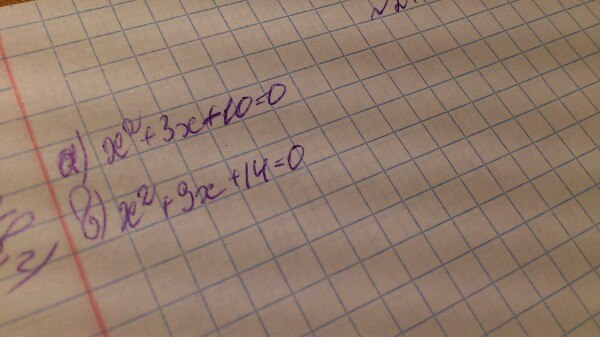 а) x² + 3x + 10 = 0
в) x² + 9x + 14 = 0